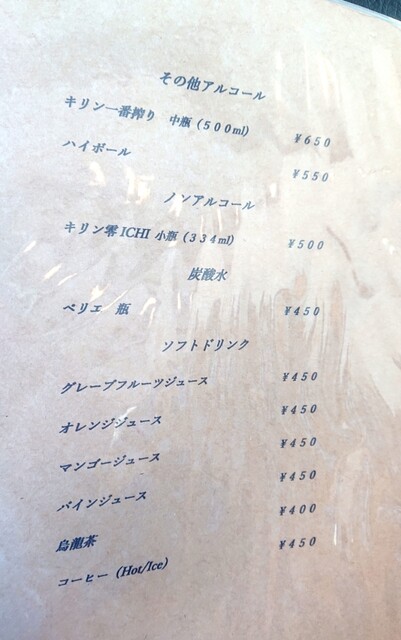 その他アルコール
キリン一番搾り 中瓶(500ml) ¥650
ハイボール ¥550
ノンアルコール
キリン零ICHI 小瓶(334ml) ¥500
炭酸水
ペリエ 瓶 ¥450
ソフトドリンク
グレープフルーツジュース ¥450
オレンジジュース ¥450
マンゴージュース ¥450
パインジュース ¥450
烏龍茶 ¥400
コーヒー(Hot/Ice) ¥450